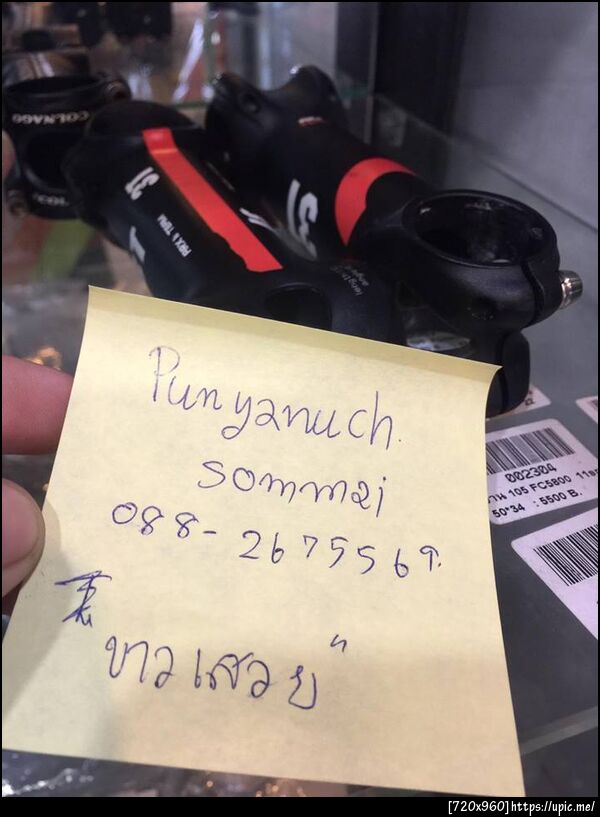 COLNAGO
31
PRO & TEAM
Punyanuch.
sommai
088-2675569.
"ขาวเสวย"
002304
105 FC5800
50*34 : 5500 B.
[720x960]https://upic.me/